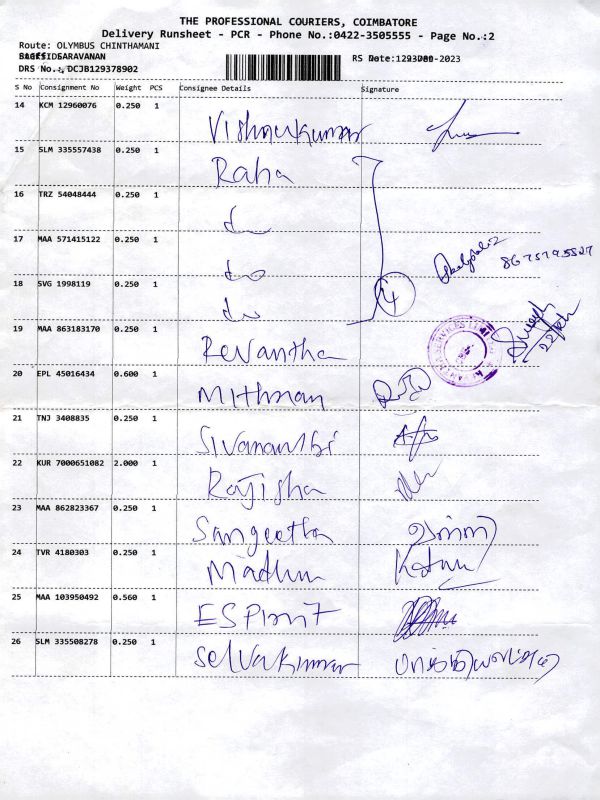 THE PROFESSIONAL COURIERS, COIMBATORE
Delivery Runsheet - PCR - Phone No.:0422-3505555 - Page No.:2
Route: OLYMBUS CHINTHAMANI
SARAVANAN
DRS No.: DCJB129378902
RS Date: -2023
S No Consignment No Weight PCS Consignee Details Signature
14 KCM 12960076 0.250 1
Vishnukumar
15 SLM 335557438 0.250 1
Raha
16 TRZ 54048444 0.250 1
do
17 MAA 571415122 0.250 1
do
18 SVG 1998119 0.250 1
do
4
19 MAA 863183170 0.250 1
Revantha
20 EPL 45016434 0.600 1
Mithran
21 TNJ 3408835 0.250 1
22 KUR 7000651082 2.000 1
Rajisha
23 MAA 862823367 0.250 1
Sangeetha
24 TVR 4180303 0.250 1
Madhu
25 MAA 103950492 0.560 1
ESPIRIT
26 SLM 335508278 0.250 1
Selvakumar